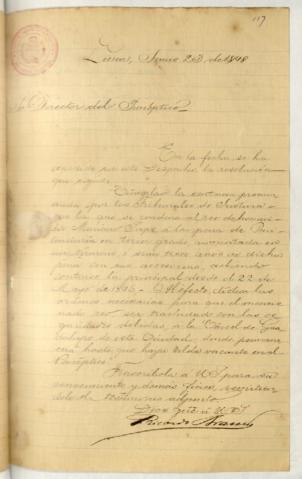 117
Lima, Junio 23 de 1898
Sr. Director del Panóptico
En la fecha, se ha
expedido por este Despacho la resolución
que sigue:
"Cúmplase la sentencia pronun
ciada por los Tribunales de Justicia
por la que se condena al reo de homici
dio Mariano Quispe a la pena de Peni
tenciaría en tercer grado,
ó sean trece años de dicha
pena con sus accesorias,
contarse la principal desde el 22 de
Mayo de 1896 - Al efecto, díctese las
órdenes necesarias para que el mencio
nado reo sea trasladado con las se
guridades debidas, a la Cárcel de Gua
dalupe de esta Ciudad, donde permane
cerá hasta que haya celda vacante en el
Panóptico"
Trascríbola a US. para su
conocimiento y demás fines,
dole testimonio adjunto.
Dios gue. á US.
Ricardo